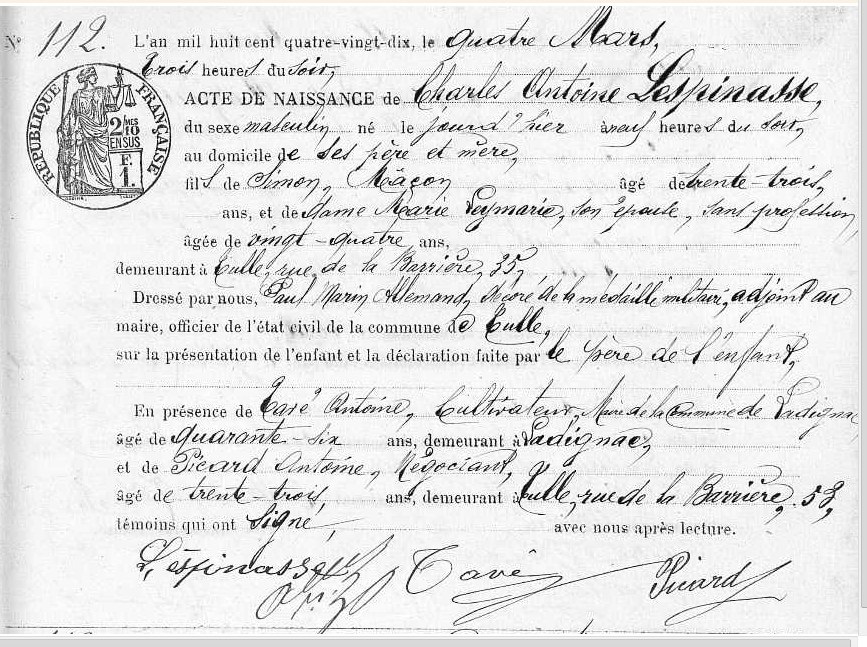 N° 112. L'an mil huit cent quatre-vingt-dix, le quatre Mars,
Trois heures du soir,
ACTE DE NAISSANCE de Charles Antoine Lespinasse,
du sexe masculin né le jour d'hier à neuf heures du soir,
au domicile de ses père et mère,
fils de Simon, Mâçon âgé de trente-trois,
ans, et de dame Marie Leymarie, son épouse, sans profession,
âgée de vingt-quatre ans,
demeurant à Tulle, rue de la Barrière, 35,
Dressé par nous, Paul Marin Allemand, décoré de la médaille militaire, adjoint au
maire, officier de l'état civil de la commune de Tulle,
sur la présentation de l'enfant et la déclaration faite par le père de l'enfant,
En présence de Tavé Antoine, Cultivateur, Maire de la Commune de Ladignac
âgé de quarante-six ans, demeurant à Ladignac,
et de Picard Antoine, Négociant,
âgé de trente-trois, ans, demeurant à Tulle, rue de la Barrière, 53,
témoins qui ont signé, avec nous après lecture.
Lespinasse Tavé Picard
RÉPUBLIQUE FRANÇAISE
2 MES
10
EN SUS
F.
1.